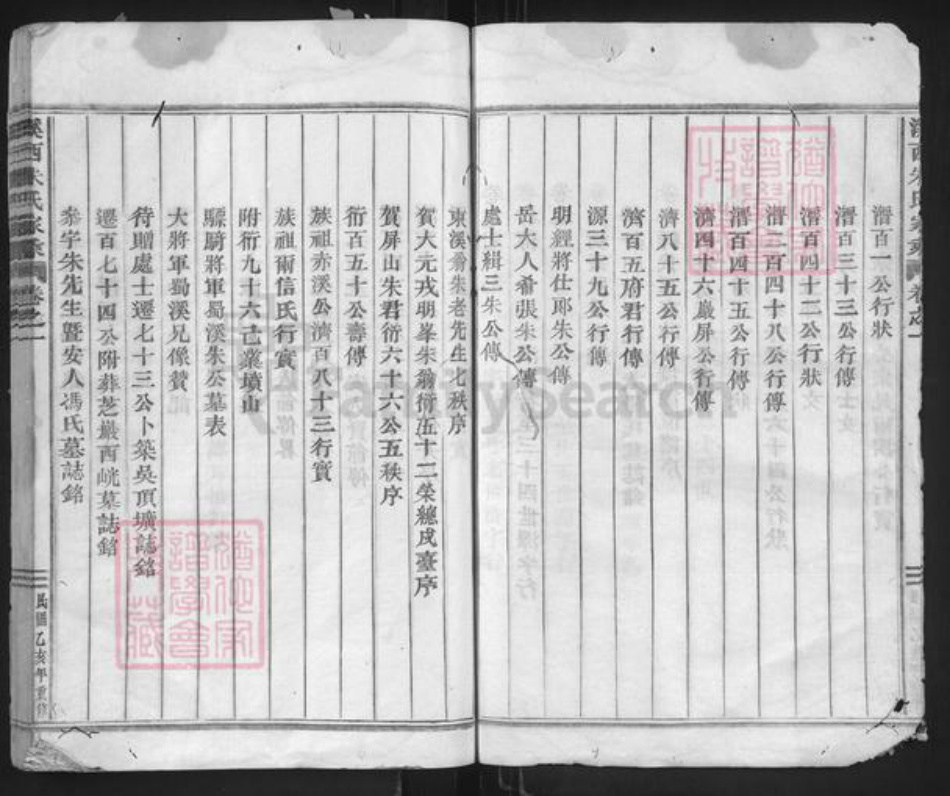 潛百一公行狀
潛百三十三公行傳
潛百四十二公行狀
潛二百四十八公行傳
潛百四十五公行傳
濟四十六嚴屏公行傳
濟八十五公行傳
濟百五府君行傳
源三十九公行傳
明經將仕郎朱公傳
岳大人希張朱公傳
處士緝三朱公傳
東溪翁朱老先生七秩序
賀大元戎明峯朱翁衍伍十二榮總戌臺序
賀屏山朱君衍六十六公五秩序
衍百五十公壽傳
族祖赤溪公濟百八十三行實
族祖爾信氏行實
附衍九十六己業墳山
驃騎將軍蜀溪朱公墓表
大將軍蜀溪兄像贊
待贈處士遷七十三公卜築吳頂壙誌銘
遷百七十四公附葬芝巖西峣墓誌銘
參宇朱先生暨安人馮氏墓誌銘
溪西朱氏家乘 卷之一
民國乙亥年重修
FamilySearch